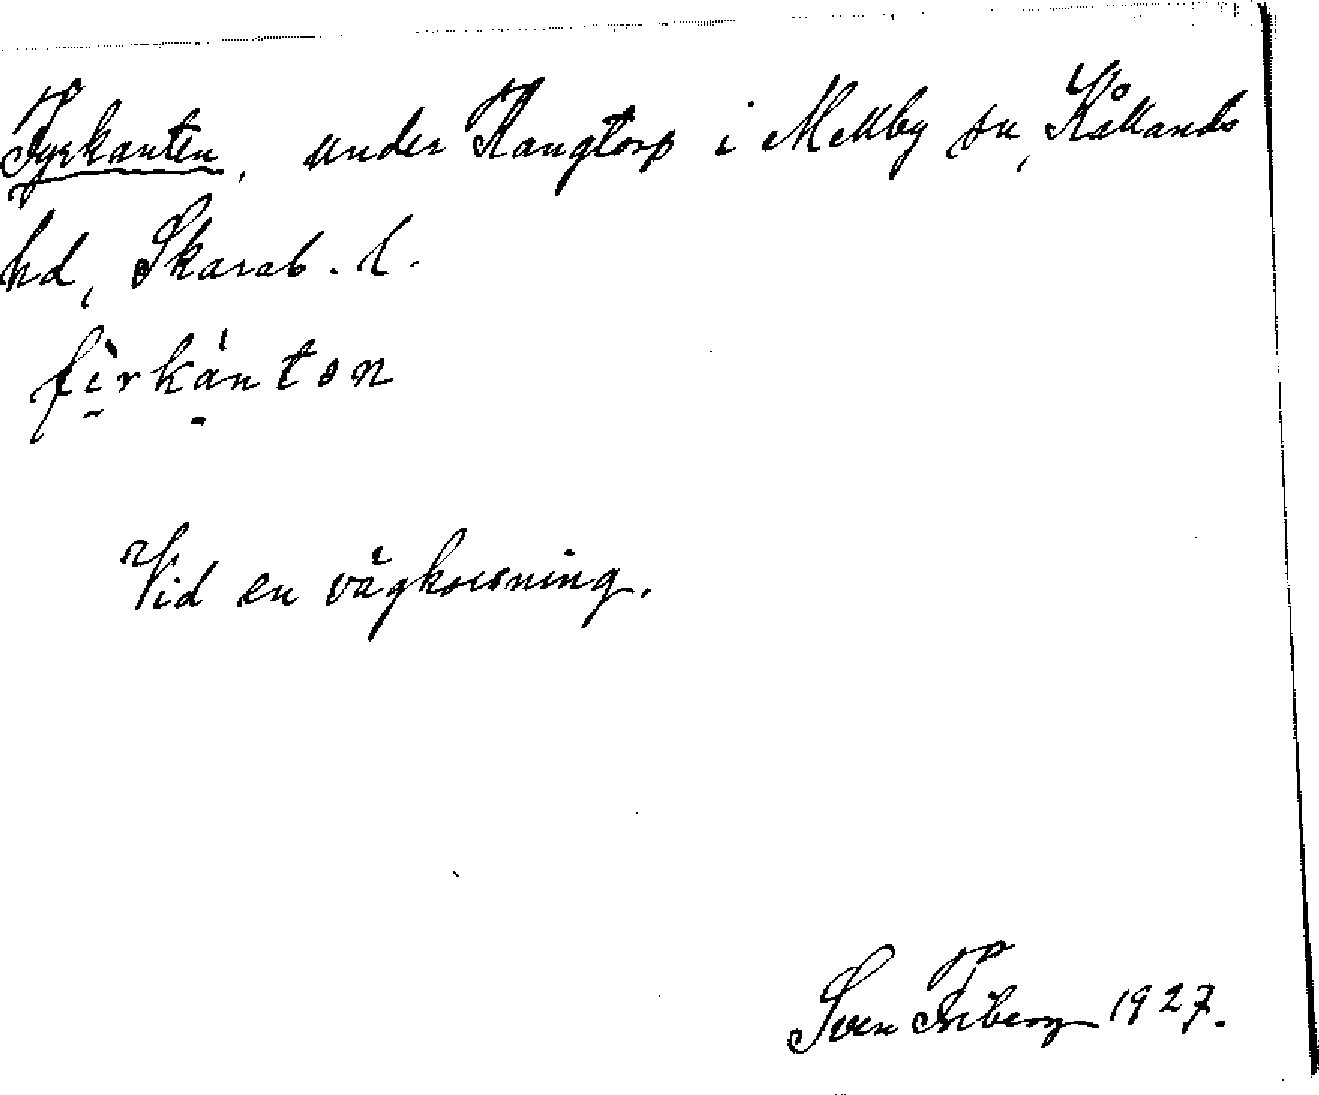 Fyrkanten, under Stangtorp i Mellby sn, Kållands
hd, Skarab. l.
fìrkán ton
Vid en vägkorsning.
Sven Friberg 1927.